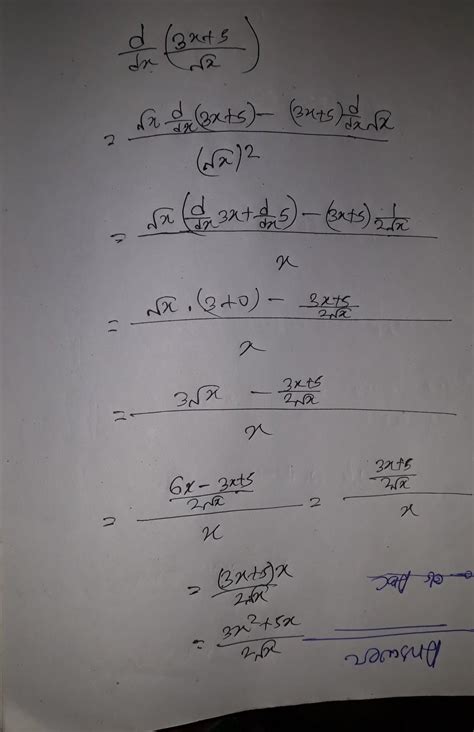 d/dx (3x+5/√x)
= √x d/dx (3x+5) − (3x+5) d/dx √x / (√x)2
= √x (d/dx 3x + d/dx 5) − (3x+5) 1/2√x / x
= √x . (3+0) − 3x+5/2√x / x
= 3√x − 3x+5/2√x / x
= 6x − 3x+5/2√x / x = 3x+5/2√x / x
= (3x+5)x/2√x
= 3x²+5x/2√x
Answer